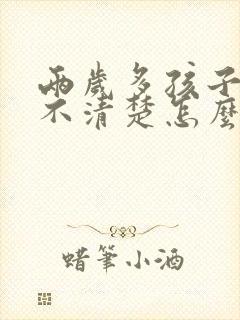 兩歲多孩子
不清楚怎麼
蜡筆小酒